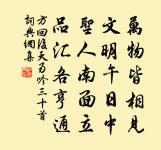 萬物皆相見
文明午日中
聖人南面立
品汇各亨通
方回後天易吟三十首
詞典網集